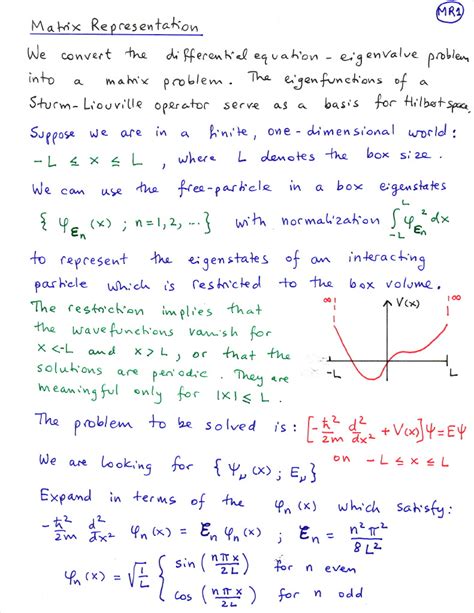 MR1
Matrix Representation
We convert the differential equation - eigenvalue problem
into a matrix problem. The eigenfunctions of a
Sturm-Liouville operator serve as a basis for Hilbert space.
Suppose we are in a finite, one-dimensional world:
-L ≤ x ≤ L , where L denotes the box size.
We can use the free-particle in a box eigenstates
{ φ_{ℰn}(x) ; n=1,2, ... } with normalization ∫_{-L}^{L} φ_{ℰn}² dx
to represent the eigenstates of an interacting
particle which is restricted to the box volume.
The restriction implies that
the wavefunctions vanish for
x<-L and x>L, or that the
solutions are periodic. They are
meaningful only for |x| ≤ L.
∞ V(x) ∞
-L L
The problem to be solved is: [-ħ²/2m d²/dx² + V(x)]Ψ=EΨ
on -L ≤ x ≤ L
We are looking for { Ψ_ν(x) ; E_ν}
Expand in terms of the φ_n(x) which satisfy:
-ħ²/2m d²/dx² φ_n(x) = ℰ_n φ_n(x) ; ℰ_n = n²π²/8L²
φ_n(x) = √(1/L) { sin(nπx/2L) for n even
cos(nπx/2L) for n odd